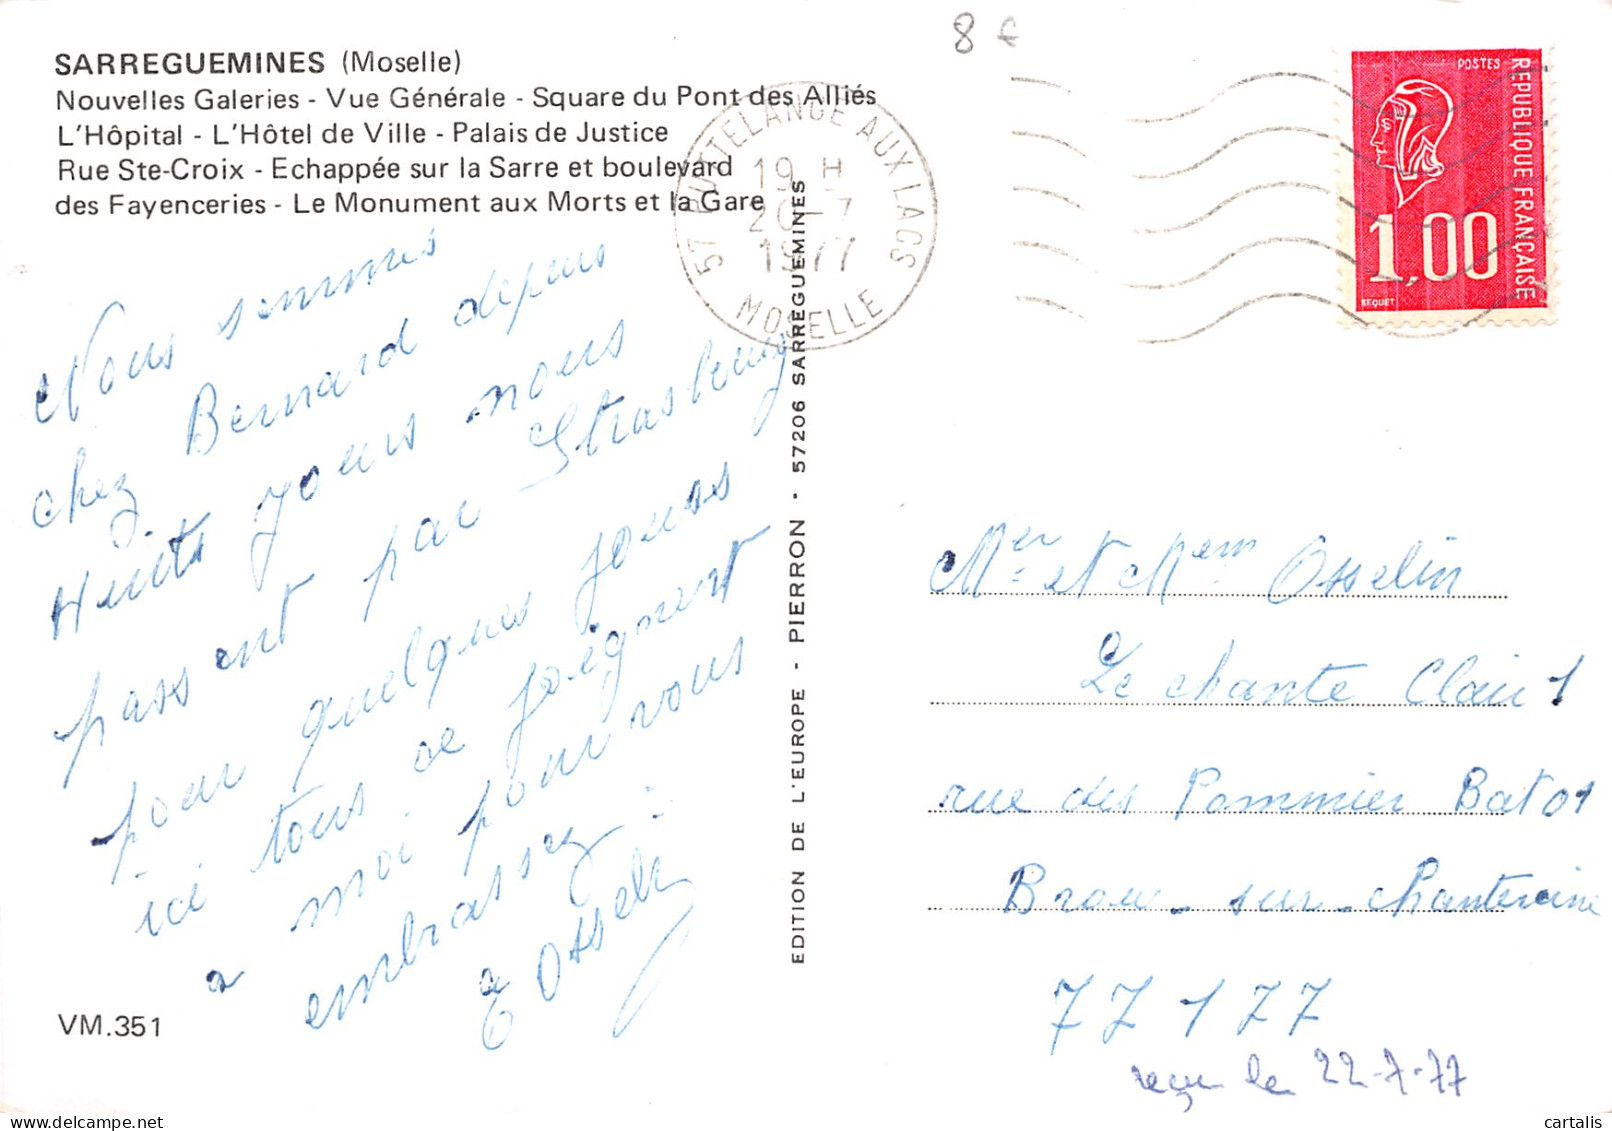 8 €
SARREGUEMINES (Moselle)
Nouvelles Galeries - Vue Générale - Square du Pont des Alliés
L'Hôpital - L'Hôtel de Ville - Palais de Justice
Rue Ste-Croix - Echappée sur la Sarre et boulevard
des Fayenceries - Le Monument aux Morts et la Gare
57 PUTTELANGE AUX LACS
19 H
20 - 7
1977
MOSELLE
POSTES
REPUBLIQUE FRANÇAISE
1,00
BEQUET
Nous sommes
chez Bernard depuis
Huits jours nous
passent par Strasbourg
pour quelques jours
ici tous ce joignent
à moi pour vous
embrassez
EDITION DE L'EUROPE - PIERRON - 57206 SARREGUEMINES
Mer et Mem Osselin
Le chante Clair 1
rue des Pommier Bat 01
Brou-sur-chantereine
77177
reçu le 22-7-77
VM.351
cartalis